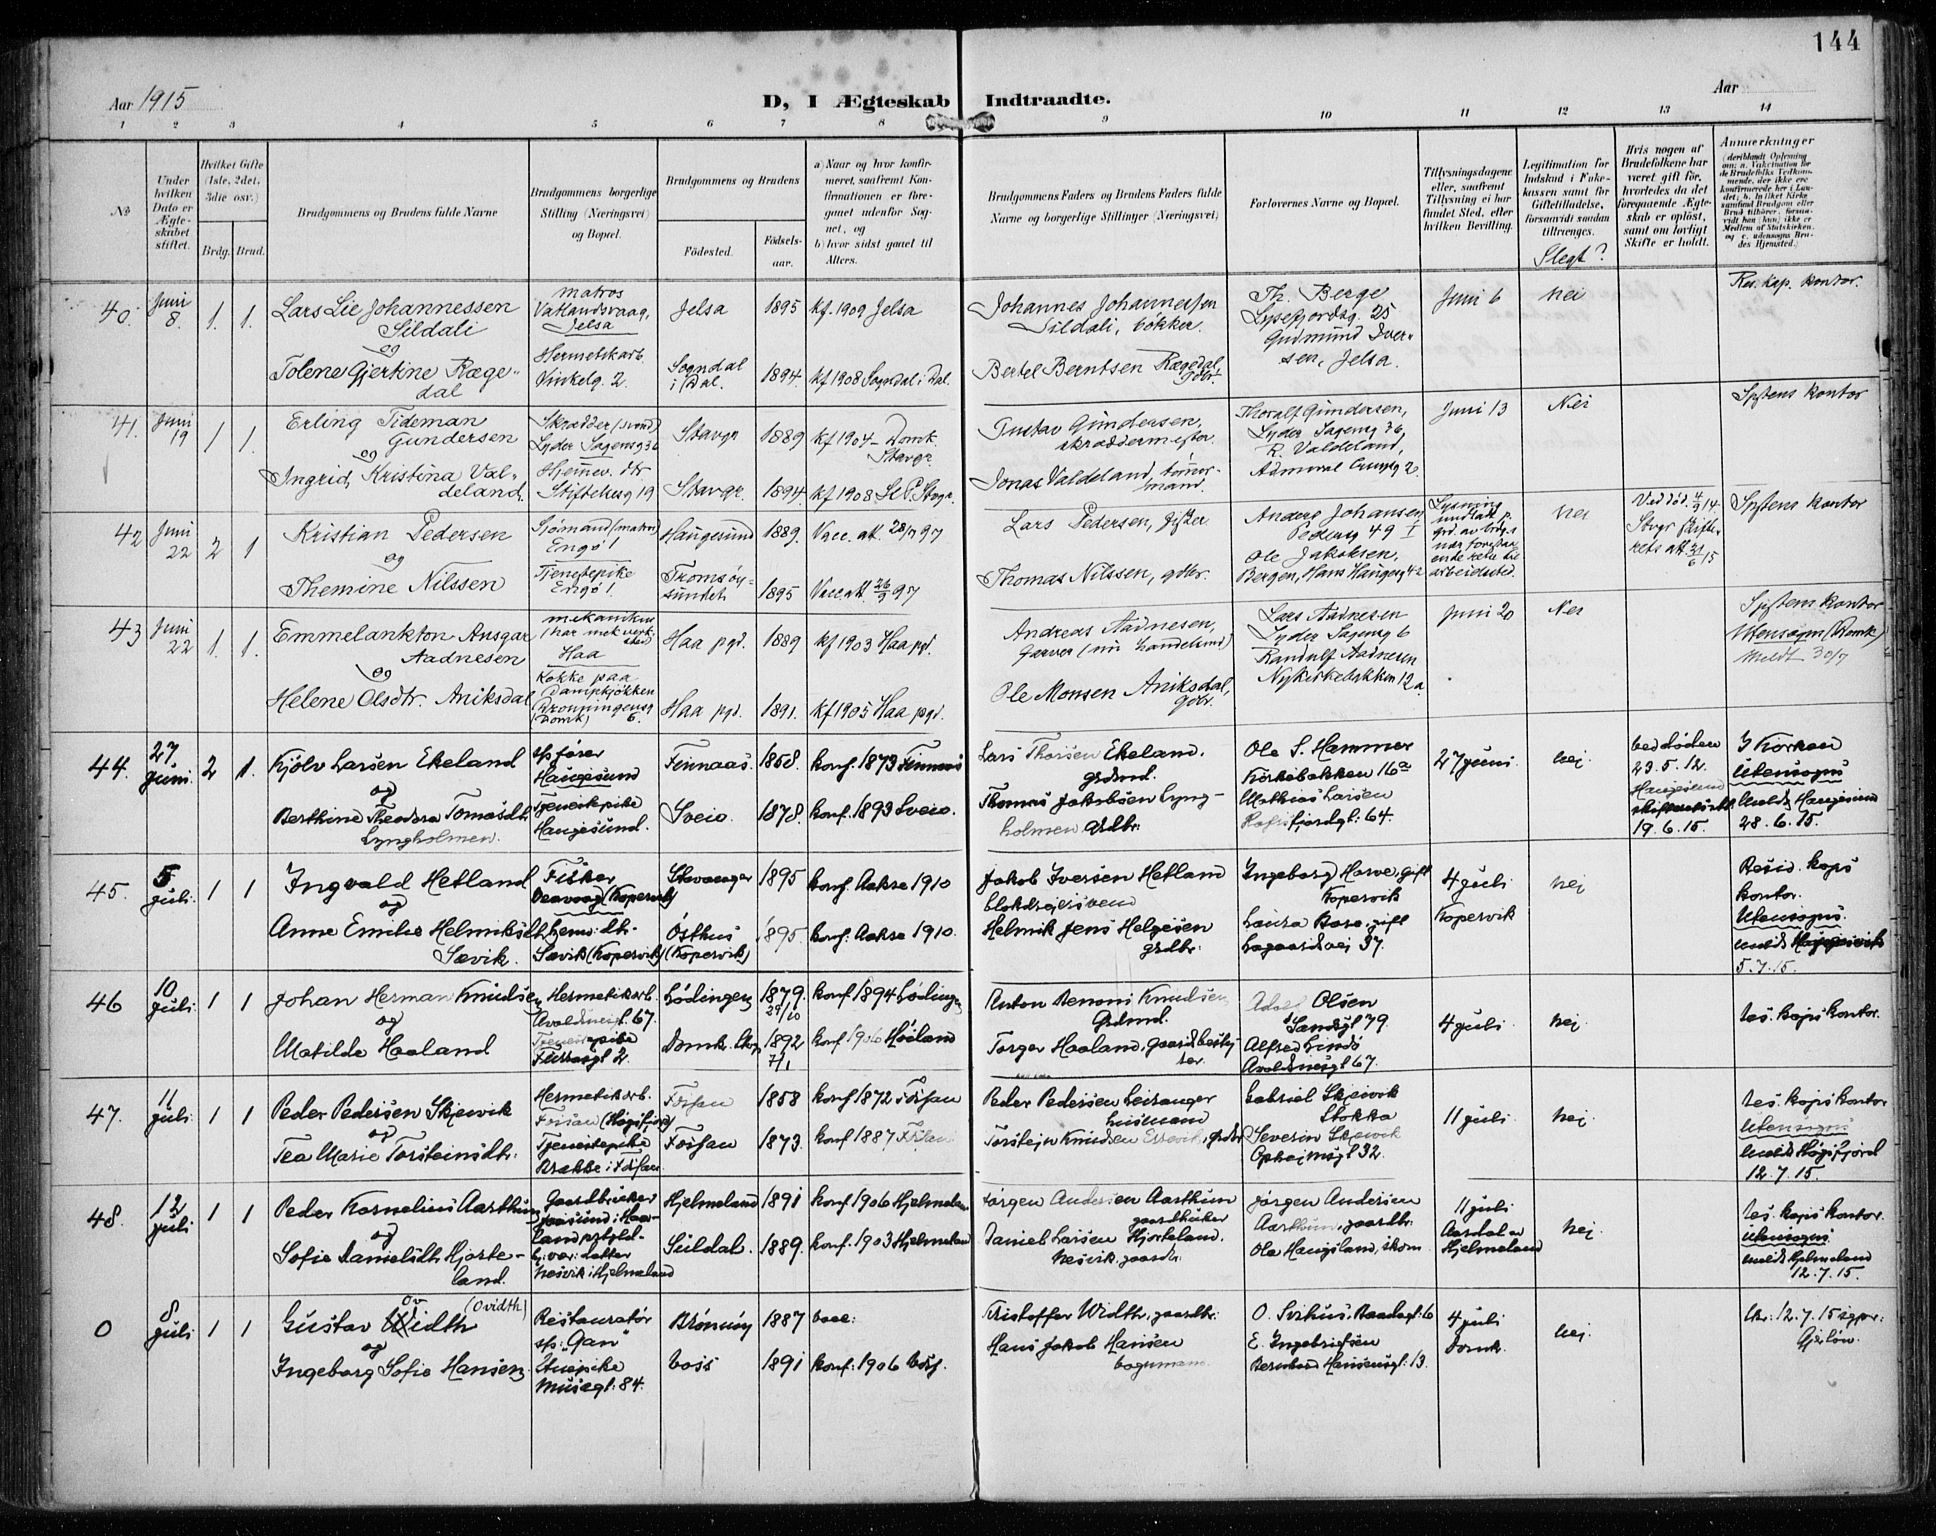 144
Aar 1915
D, I Ægteskab Indtraadte.
Aar
1 2 3 4 5 6 7 8 9 10 11 12 13 14
No
Under hvilken Dato er Ægteskabet stiftet.
Hvilket Gifte (1ste, 2det, 3die osv.)
Brdg. Brud.
Brudgommens og Brudens fulde Navne
Brudgommens borgerlige Stilling (Næringsvei) og Bopæl.
Brudgommens og Brudens
Fødested.
Fødselsaar.
a) Naar og hvor konfirmeret, saafremt Konfirmationen er foregaaet udenfor Sognet, og
b) hvor sidst gaaet til Alters.
Brudgommens Faders og Brudens Faders fulde Navne og borgerlige Stillinger (Næringsvei)
Forlovernes Navne og Bopæl.
Tillysningsdagene eller, saafremt Tillysning ei har fundet Sted, efter hvilken Bevilling.
Legitimation for Indskud i Enkekassen samt for Giftetilladelse, forsaavidt saadan tiltrænges.
Slegt?
Hvis nogen af Brudefolkene har været gift før, hvorledes da det foregaaende Ægteskab er opløst, samt om lovligt Skifte er holdt.
Anmerkninger
40. Juni 8. 1. 1.
Lars Lie Johannessen Sildali
og
Tolene Gjertine Rægedal
matros Vatlandsvaag, Jelsa
Hermetikarb. Vinkelg. 2.
Jelsa 1895 kf. 1909 Jelsa
Sogndal i Dal. 1894. kf 1908 Sogndal i Dal.
Johannes Johannessen Sildali, bøkker.
Bertel Berntsen Rægedal, gbr.
Th. Berge Lysefjordsg. 25
Gudmund Iversen, Jelsa.
Juni 6 nei
Res. kap. kontor.
41. Juni 19 1 1.
Erling Tideman Gundersen
og
Ingrid Kristina Valdeland
Skrædder (svend) Lyder Sagensg 36
Hjemmev. dtr Stiftelsesg 19
Stavgr 1889 kf 1904 – Domk. Stavgr.
Stavgr. 1894 kf 1908 St. P. Stvgr.
Gustav Gundersen, skræddermester.
Jonas Valdeland, tømmermand.
Thoralf Gundersen, Lyder Sagensg 36,
R. Valdeland, Admiral Crusesg 2
Juni 13 Nei
Sp̸tens kontor
42 Juni 22 2 1
Kristian Pedersen
og
Themine Nilssen
Sjømand (matros) Engø 1
Tjenestepike Engø 1.
Haugesund 1889. Vacc. att. 28/7 97
Tromsøysundet 1895 Vacc. att. 26/9 97
Lars Pedersen, fisker
Thomas Nilssen, gdbr.
Anders Johansen, Pedersg 49 I
Ole Jakobsen, Bergen, Hans Haugesg 42
nei
Ved død. 4/9 14.
43 Juni 22 1. 1.
Emmelankton Ansgar Aadnesen
og
Helene Olsdtr. Aniksdal
mekaniker (har mek verksted) Haa
Kokke paa Dampkjøkken Dronningensg 6. (Domk)
Haa pgd. 1889 kf 1903 Haa pgd.
Haa pgd. 1891. kf 1905 Haa pgd.
Andreas Aadnesen, garver (nu handelsmd)
Ole Monsen Aniksdal, gbr.
Lars Aadnesen Lyder Sagensg 6
Randulf Aadnesen Nykirkebakken 12a.
Juni 20 Nei
Utensogns (Domk) Meldt 30/7
44. 27. juni. 2 1.
Kjølv Larsen Ekeland
og
Berthine Theodora Tomasdtr. Lyngholmen.
Haugesund
Tjenestepike Haugesund.
Finnaas. 1858. konf. 1873 Finnaas
Sveio. 1878. konf. 1893 Sveio.
Lars Thorsen Ekeland. grdmd.
Thomas Jakobsen Lyngholmen grdbr.
Ole S. Hammer Kirkebakken 16a
Mathias Larsen Ryfisfjordgt. 64.
27 juni nej
ved døden 23.5.12. Haugesund skifterett 19.6.15.
I Kirken Utensogns Meldt Haugesund 28.6.15.
45. 5 juli 1 1
Ingvald Hetland
og
Anne Emilie Helmiksdtr. Sævik.
Fisker (Kopervik)
hjemv. dtr. Sævik (Kopervik)
Stavanger 1895 konf. Aakre 1910
Østhus (Kopervik) 1895. konf: Aakre 1910.
Jakob Iversen Hetland blokdreiersvend
Helmik Jens Helgesen grdbr.
Ingeborg Harve, gift Kopervik
Laura Bore gift Lagaardsvej 37.
4 juli Kopervik nej
Resid. kaps kontor. Utensogns. 5.7.15.
46 10 juli 1 1
Johan Herman Knudsen
og
Matilde Haaland
Hermetikarb. Avaldsnesgt. 67.
Tjenestepike 2.
Lødingen 1879. 29/10 konf 1894 Lødingen
Domk. Stvgr 1892 7/1 konf 1906 Høiland
Anton Benoni Knudsen Grdmd.
Torger Haaland, gaardbestyrer.
Olsen Sandsgt 79.
Alfred Lindø Avaldsnesgt 67.
4 juli. nej.
res. kaps kontor.
47. 11 juli 1 1
Peder Pedersen Skjævik
og
Tea Marie Torsteinsdtr.
Hermetikarb. Forsan (Høgsfjord)
Tjenestepike Brække i Forsan
Forsan 1858 konf 1872 i Forsan
Forsan 1873. konf 1887 Forsan
Peder Pedersen Leiranger husmand
Torstein Knudsen, grdbr
Gabriel Skjævik Stokka
Severin Skjævik Ophejmsgt 32.
11 juli. nej.
res. kaps kontor Utensogns meldt Høgsfjord 12.7.15.
48. 12 juli 1 1
Peder Kornelius Aarthun
og
Sofie Danielsdtr Hjorteland.
Gaardbruker
datter Nesvik i Hjelmeland
Hjelmeland 1891 konf. 1906 Hjelmeland
Suldal. 1889. konf. 1903 Hjelmeland
Jørgen Andersen Aarthun gaardbruker
Daniel Larsen Hjorteland, Nesvik, gaardbr.
Jørgen Andersen Aarthun, gaardbr.
Ole Haugsland, skom.
11 juli Aardal og Hjelmeland nej.
res. kaps kontor. utensogns. meldt Hjelmeland 12.7.15.
0 8 juli 1 1
Gustav Ovidth (Ovidth)
og
Ingeborg Sofie Hansen
Restauratør sp: "Gan"
Stuepike Musegt. 84.
Brønnøy 1887 vacc:
Voss 1891 konf: 1906 Voss.
Kristoffer Width, gaardbr.
Hans Jakob Hansen vognmann.
O. Svihus. Raadgt: 6
E. Ingebrigtsen Bernhard Hansensgt: 13.
4 juli Domk. nej.